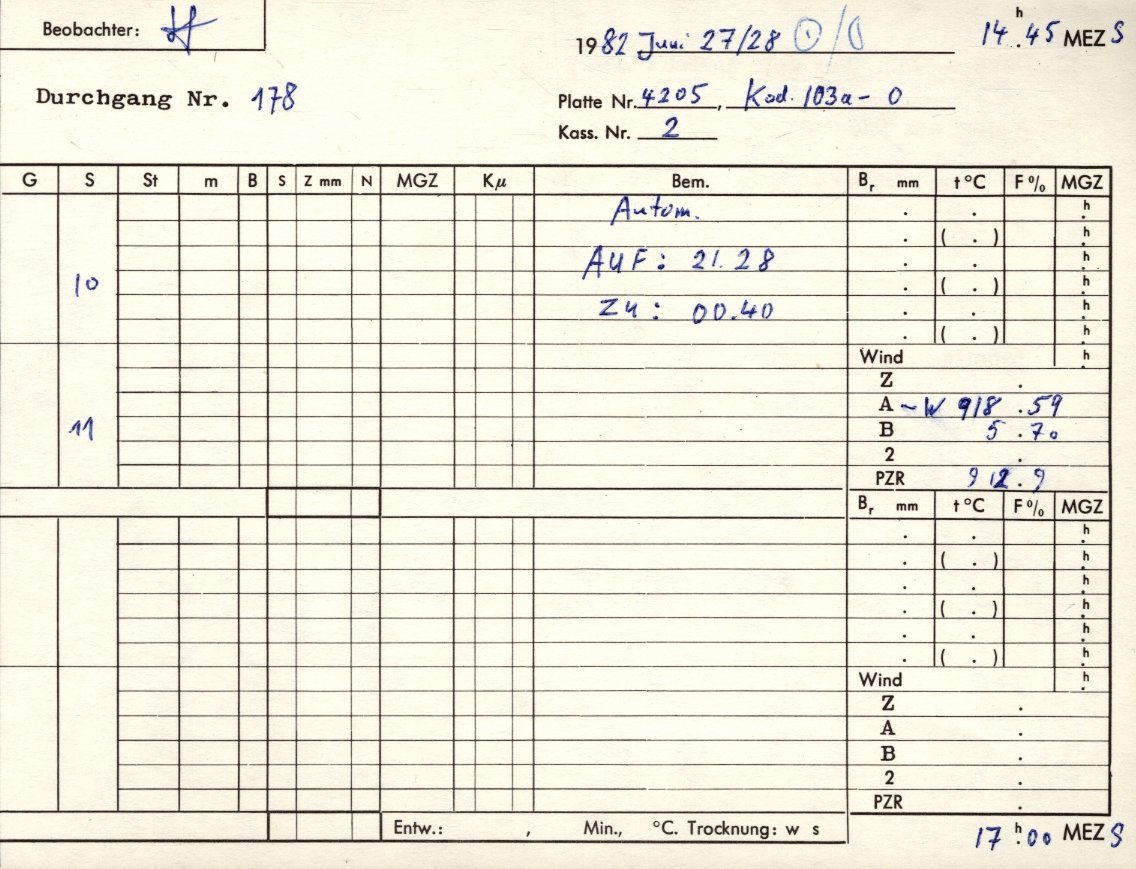 Beobachter:
1982 Juni 27/28
14h.45 MEZ S
Durchgang Nr. 178
Platte Nr. 4205, Kod. 103a-0
Kass. Nr. 2
G S St m B S Z mm N MGZ Kμ Bem. Br mm t °C F % MGZ
Autom. . . h.
. ( . ) h.
10 AUF: 21.28 . . h.
. ( . ) h.
Zu: 00.40 . . h.
. ( . ) h.
Wind h.
Z .
A -W 918.59
11 B 5.70
2 .
PZR 912.9
Br mm t °C F % MGZ
. . h.
. ( . ) h.
. . h.
. ( . ) h.
. . h.
. ( . ) h.
Wind h.
Z .
A .
B .
2 .
PZR .
Entw.: , Min., °C. Trocknung: w s
17h.00 MEZ S